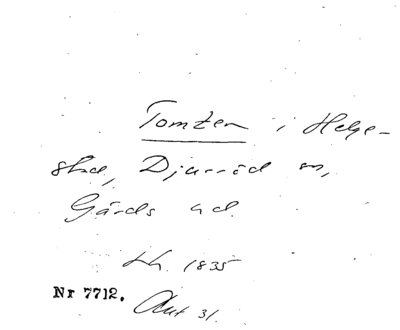 Tomten i Helge-
stad, Djurröd sn,
Gärds hd.
Lh. 1835
Nr 7712. Akt 31.